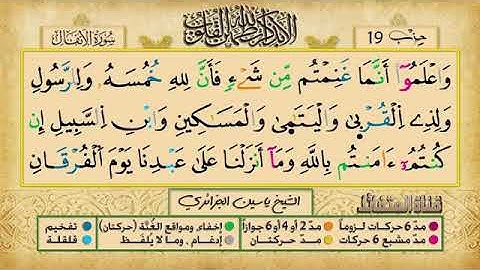 سُورَةُ الْأَنفَالِ
أَلَا بِذِكْرِ اللَّهِ تَطْمَئِنُّ الْقُلُوبُ
حِزْب 19
وَاعْلَمُوٓا أَنَّمَا غَنِمْتُم مِّن شَيْءٍ فَأَنَّ لِلهِ خُمُسَهُ وَلِلرَّسُولِ
وَلِذِے اِلْقُرْبٰى وَالْيَتٰمٰى وَالْمَسَٰكِينِ وَابْنِ اِلسَّبِيلِ إِن
كُنتُمُۥٓ ءَامَنتُم بِاللَّهِ وَمَآ أَنزَلْنَا عَلَىٰ عَبْدِنَا يَوْمَ اَلْفُرْقَانِ
الشيخ ياسين الجزائري
مدّ 6 حركات لزوماً
مدّ 2 أو 4 أو 6 جوازاً
إخفاء، ومواقع الغُنَّة (حركتان)
تفخيم
مدّ مشبع 6 حركات
مدّ حركتان
إدغام، وما لا يُلفَظ
قلقلة